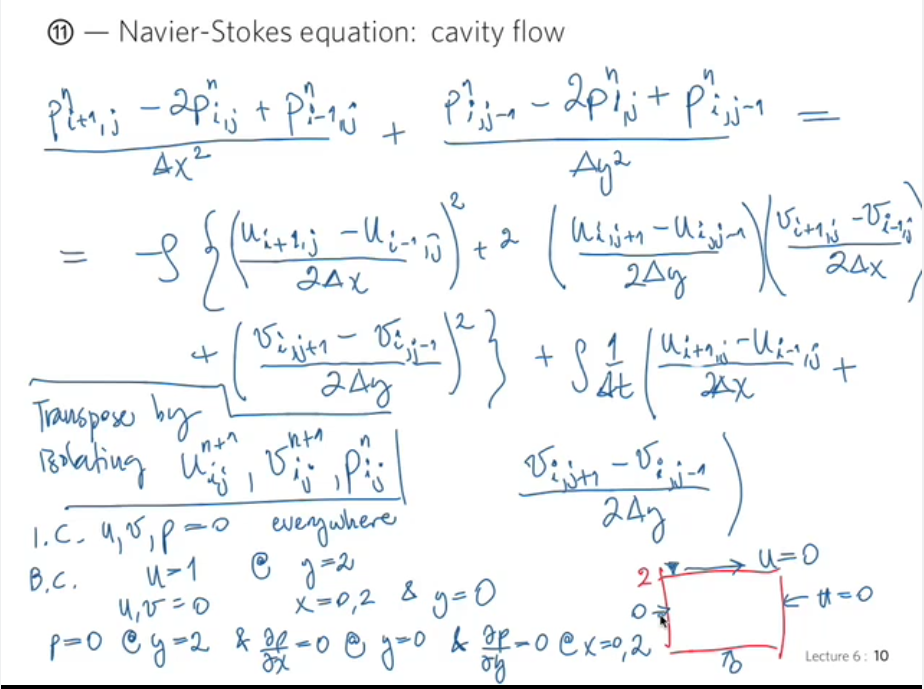 ⑪ — Navier-Stokes equation: cavity flow
(pⁿᵢ₊₁,ⱼ − 2pⁿᵢ,ⱼ + pⁿᵢ₋₁,ⱼ)/Δx² + (pⁿᵢ,ⱼ₋₁ − 2pⁿᵢ,ⱼ + pⁿᵢ,ⱼ₋₁)/Δy² =
= −ρ {((uᵢ₊₁,ⱼ − uᵢ₋₁,ⱼ)/2Δx)² + 2 ((uᵢ,ⱼ₊₁ − uᵢ,ⱼ₋₁)/2Δy)((vᵢ₊₁,ⱼ − vᵢ₋₁,ⱼ)/2Δx)
+ ((vᵢ,ⱼ₊₁ − vᵢ,ⱼ₋₁)/2Δy)²} + ρ 1/Δt ((uᵢ₊₁,ⱼ − uᵢ₋₁,ⱼ)/2Δx +
(vᵢ,ⱼ₊₁ − vᵢ,ⱼ₋₁)/2Δy)
Transpose by
isolating uᵢⱼⁿ⁺¹, vᵢⱼⁿ⁺¹, pᵢⱼⁿ
I.C. u, v, p = 0 everywhere
B.C. u=1 @ y=2
u,v=0 x=0,2 & y=0
p=0 @ y=2 & ∂p/∂x=0 @ y=0 & ∂p/∂y=0 @ x=0,2
2
u=0
0
u=0
0
Lecture 6 : 10